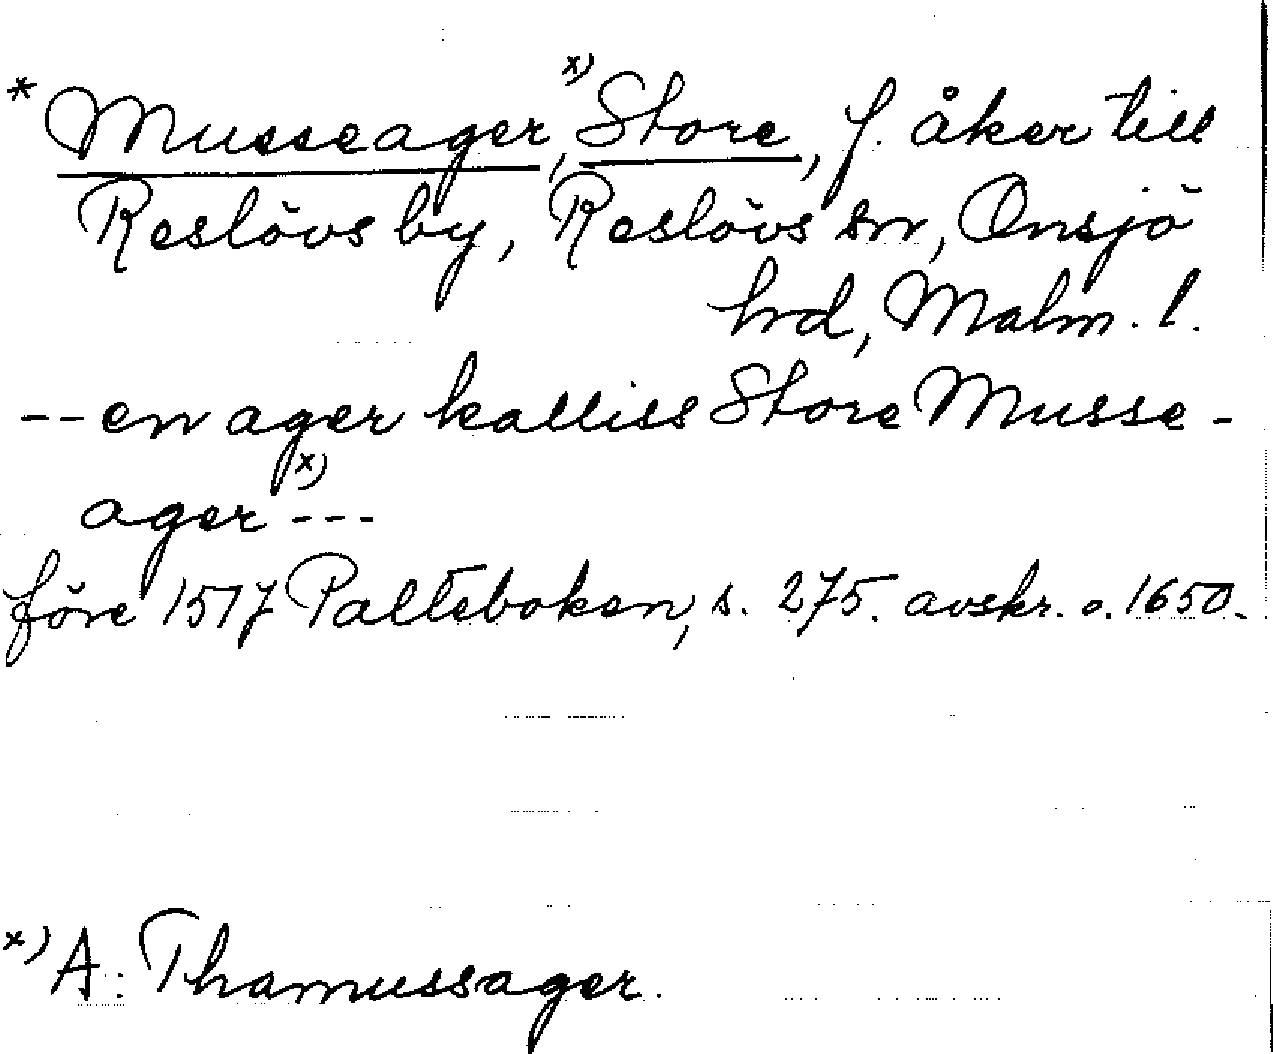 * Musseager, x) Store, f. åker till
Reslövs by, Reslövs sn, Onsjö
hrd, Malm. l.
-- en ager kalliss Store Musse-
ager x) ---
före 1517 Palteboken, s. 275. avskr. o. 1650.
x) A: Thamussager.